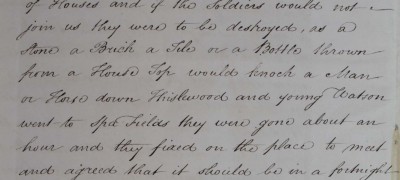 of Houses and if the Soldiers would not
join us they were to be destroyed, as a
Stone a Brick a Tile or a Bottle thrown
from a House Top would knock a Man
or Horse down Thislewood and young Watson
went to Spa Fields they were gone about an
hour and they fixed on the place to meet
and agreed that it should be in a fortnight